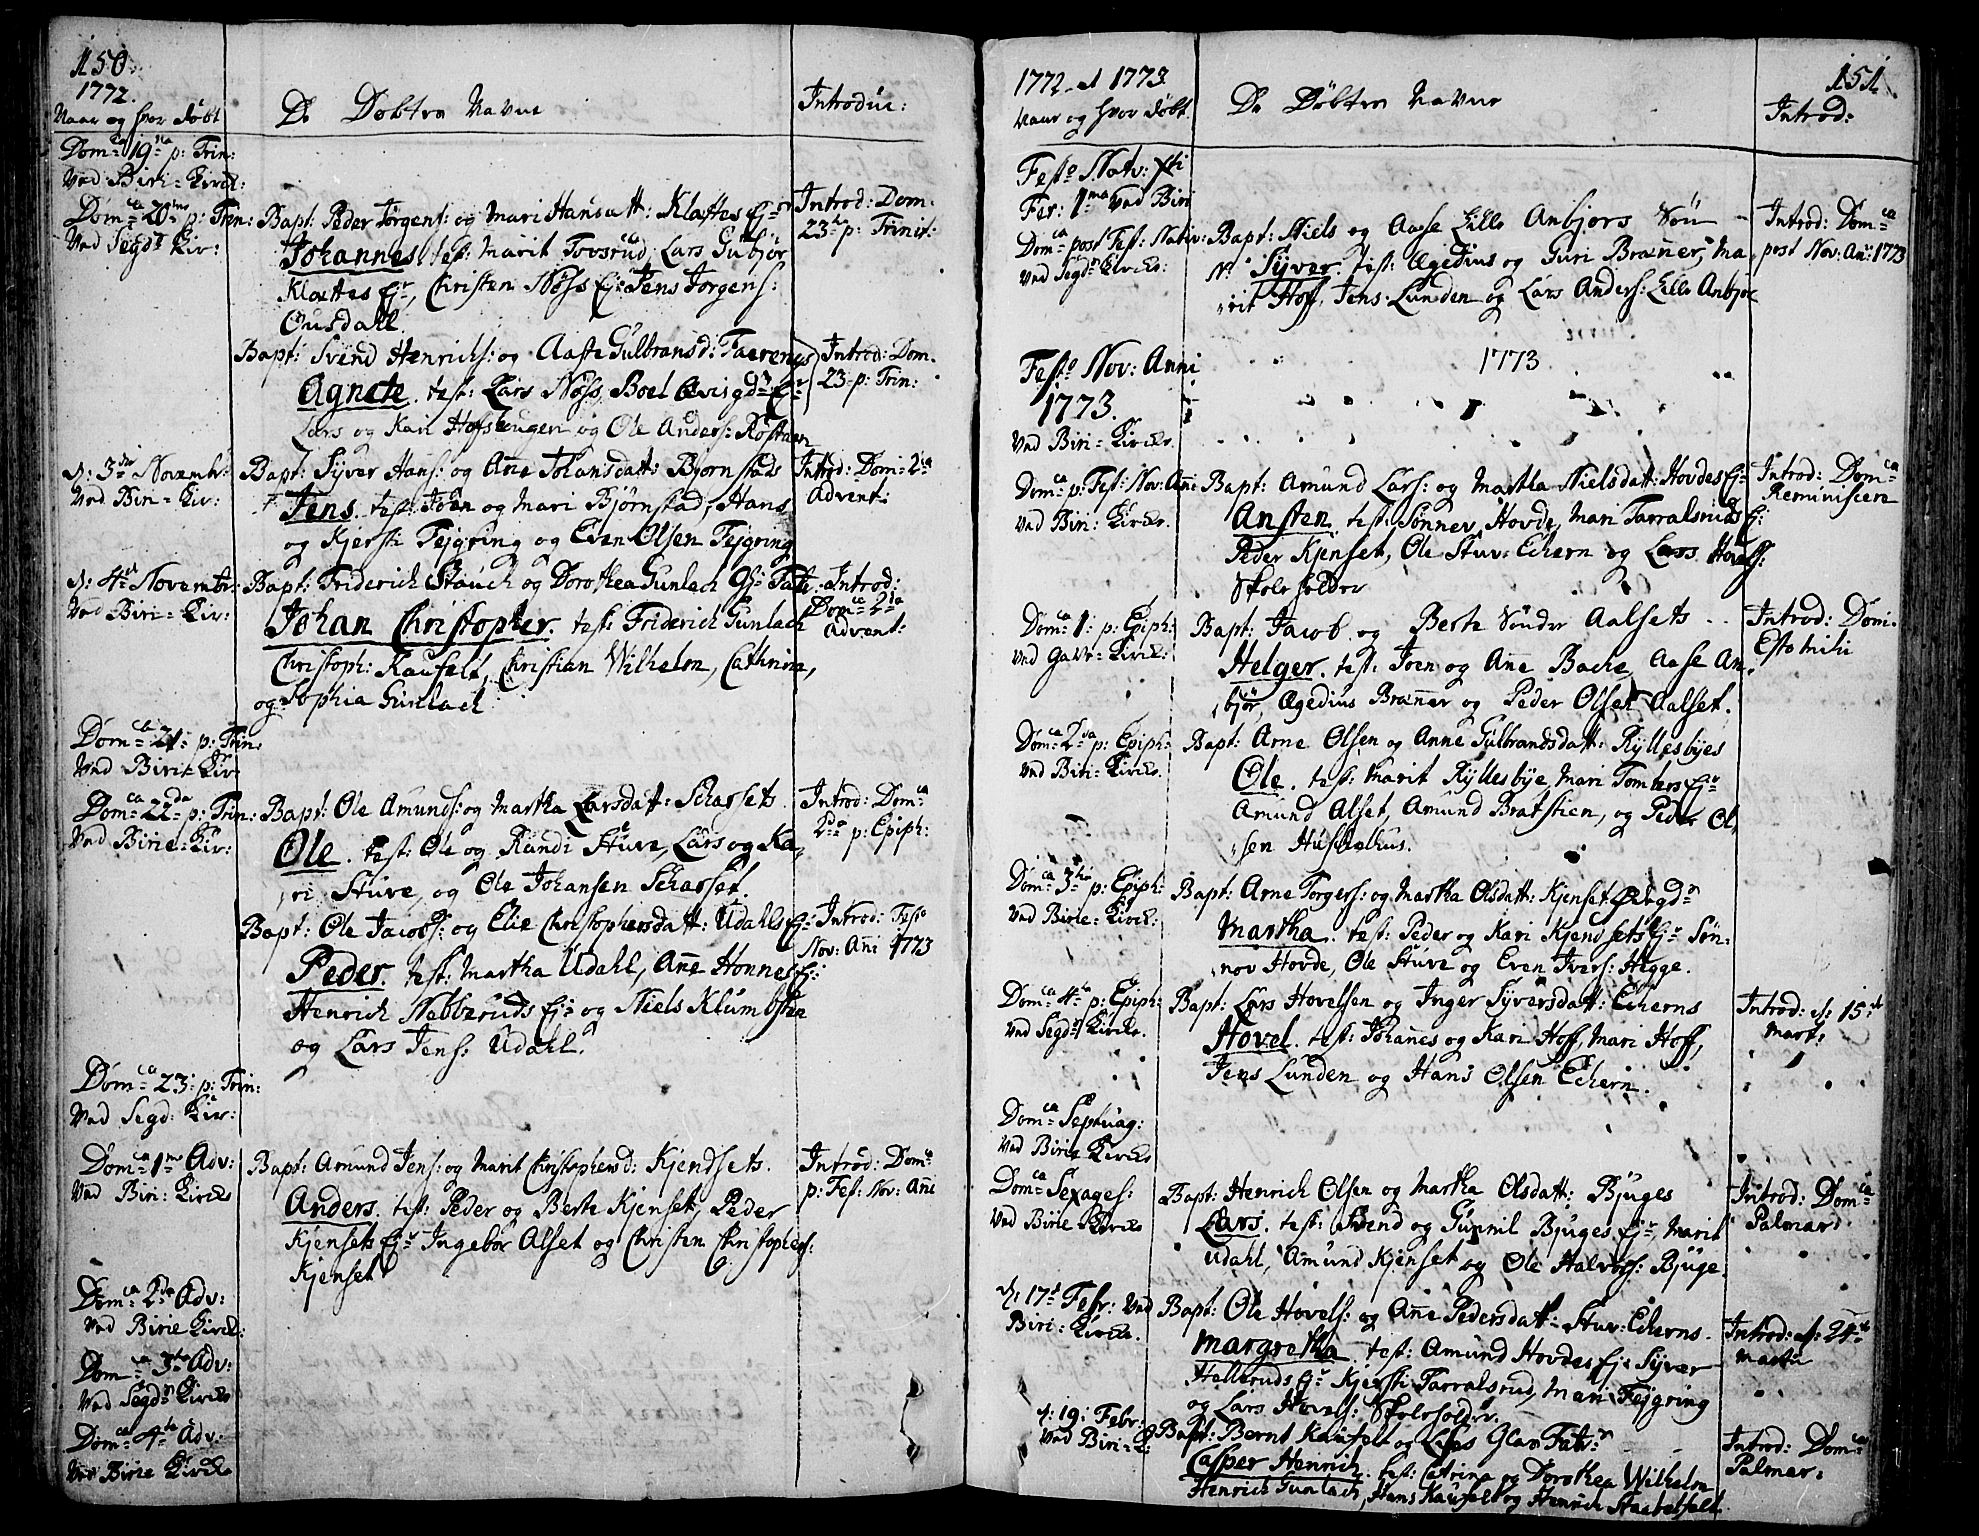 150.
1772.
Naar og hvor döbt
De Döbtes Navne
Introduc:
Dom:ca 19:na p: Trin:
Ved Biri-Kirck:
Dom:ca 20:ma p: Trin:
Ved Segd:s Kir:
Bapt: Peder Jörgens: og Mari Hansdatt: Klættes Ej:r
Johannes, test: Marit Tovsrud, Lars Gubjör
Klættes Ej:r, Christen Nöss Ej: Jens Jörgens:
Ousdahl.
Introd: Dom.
23:tia p: Trinit:
Bapt: Svend Henrichs: og Aaste Gulbransd:
Agnete. test: Lars Nöss, Boel Ej:r
Lars og Kari og Ole Anders:
Introd: Dom.
23 p: Trin:
d: 3:die Novembr:
Ved Biri-Kir:
Bapt: Syver Hans: og Añe Johansdatt: Bjornstads
Jens. test: Joen og Mari Bjørnstad, Hans
og Kjersti Fejgring og Even Olsen Fejgring
Introd: Dom: 2:da
Advent:
d: 4:de Novembr:
Ved Biri-Kir:
Bapt: Friderich Stauch og Dorothea Gunlach
Johan Christopher. test: Friderich Gunlach
Christoph: Kaufelt, Christian Wilhelm, Cathrina,
og Sophia Gunlach
Introd:
Dom:ca 2:da
Advent:
Dom:ca 21 p: Trin:
Ved Birie Kir:
Dom:ca 22:da p: Trin:
Ved Birie-Kir:
Bapt: Ole Amunds: og Martha Larsdatt: Scharsets
Ole. test: Ole og Rundi Stuve, Lars og Ka,
,ri Stuve, og Ole Johansen Scharset.
Introd: Dom:ca
2:da p: Epiph:
Bapt: Ole Jacobs: og Elie Christophersdatt: Udahls Ej:
Peder. test: Martha Udahl, Añe Honnes Ej:
Henrich Nebberuds Ej: og Niels Klumbsten
og Lars Jens: Udahl.
Introd: Festo
Nov: Añi 1773
Dom:ca 23: p: Trin:
Ved Segd: Kir:
Dom:ca 1:ma Adv:
Ved Biri-Kircke
Bapt: Amund Jens: og Marit Christophersd: Kjendsets.
Anders. test: Peder og Berte Kjenset, Peder
Kjensets Ej:r Ingebor Alset og Christen Christophers:
Kjenset
Introd: Dom:ca
p: Fes: Nov: Añi
Dom:ca 2:da Adv:
Ved Birie Kirck:
Dom:ca 3:tia Adv:
Ved Segd:s Kircke
Dom:ca 4:ta Adv:
Ved Birie Kircke
1772 et 1773.
Naar og hvor döbt.
De Döbtes Navne
151.
Introd:
Festo Nativ: Xti
Fer: 1:ma Ved Biri
Dom:ca post Fest: Nativ:
Ved Segd:s Kircke:
Bapt: Niels og Aase Lille Anbjörs Sön
N: Syver. test: Ægedius og Guri Brañer, Ma,
,rit Hoff, Jens Lunden og Lars Anders: Lille Anbjör
Introd: Dom:ca
post Nov: An: 1773
1773
Festo Nov: Anni
1773.
Ved Biri-Kircke.
Dom:ca p: Fest: Nov: Añi
Ved Biri-Kircke.
Bapt: Amund Lars: og Martha Nielsdatt: Hovdes Ej:
Ansten. test: Sönnev Hovde, Mari Tarralsruds Ej:
Peder Kjenset, Ole Stuv: Echern og Lars
Skoleholder
Introd: Dom:ca
Reminiscere
Dom:ca 1: p: Epiph:
Ved Gav:-Kirck:
Bapt: Jacob og Berte Sönder Aalsets
Helger. test: Joen og Añe Bache, Aase An,
,björ, Ægedius Brañer og Peder Olsen Aalset.
Introd: Dom:
Estomihi
Dom:ca 2:da p: Epiph:
Ved Biri-Kircke.
Bapt: Arne Olsen og Anne Gulbrandsdatt: Ryllesbyes
Ole. test: Marit Ryllesbye, Mari Tomters Ej:r
Amund Alset, Amund Bratstien, og Peder Ol,
,sen Huskelhus.
Dom:ca 3:tia p: Epiph:
Ved Birie-Kirck:
Bapt: Arne Torgers: og Martha Olsdatt: Kjenset
Martha. test: Peder og Kari Kjendsets Ej:r Sön,
,nov Hovde, Ole Stuve og Even Ivers: Higge.
Dom:ca 4:ta p: Epiph:
Ved Segd:s Kircke.
Bapt: Lars Hovelsen og Inger Syversdatt: Echerns
Hovel. test: Johañes og Kari Hoff, Mari Hoff,
Jens Lunden og Hans Olsen Echern.
Introd: d: 15:de
Mart:
Dom:ca Septuag:
Ved Birie Kircke
Dom:ca Sexages:
Ved Birie Kircke
Bapt: Henrich Olsen og Martha Olsdatt: Bjuges
Lars. test: Svend og Gunnil Bjuges Ej:r, Marit
Udahl, Amund Kjenset og Ole Halvors: Bjuge.
Introd: Dom:ca
Palmar:
d: 17:de Febr: Ved
Biri-Kircke.
Bapt: Ole Hovels: og Añe Pedersdatt: Stuv: Echerns.
Margretha. test: Amund Hovdes Ej: Syver
Hellesruds Ej:r Kjersti Tarralsrud, Mari Fejgring
og Lars Hovels: Skoleholder.
Introd: d: 24:de
Martii
d: 19: Febr:
Ved Biri-K:
Bapt: Bernt Kaufelt og Lises Glas Fabr:
Casper Henrich. test: Catrina og Dorothea Wilhelm
Henrich Gunlach, Hans Kaufelt og Henrich
Introd: Dom:ca
Palmar: